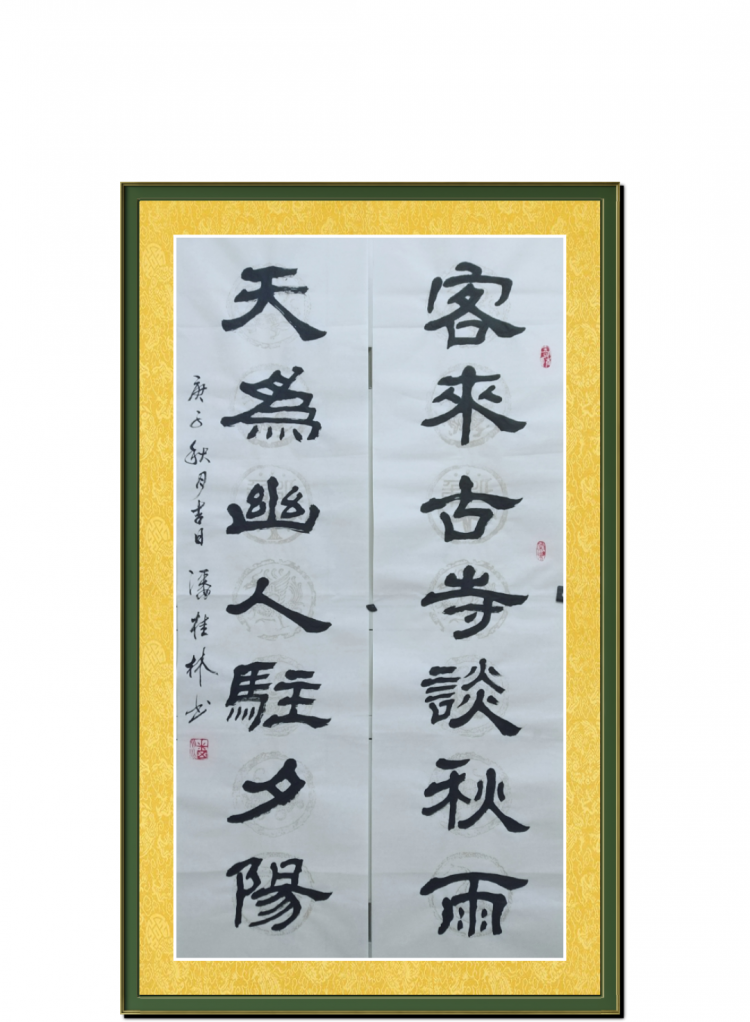 客來古寺談秋雨
天為幽人駐夕陽
庚子秋月吉日 潘桂林书